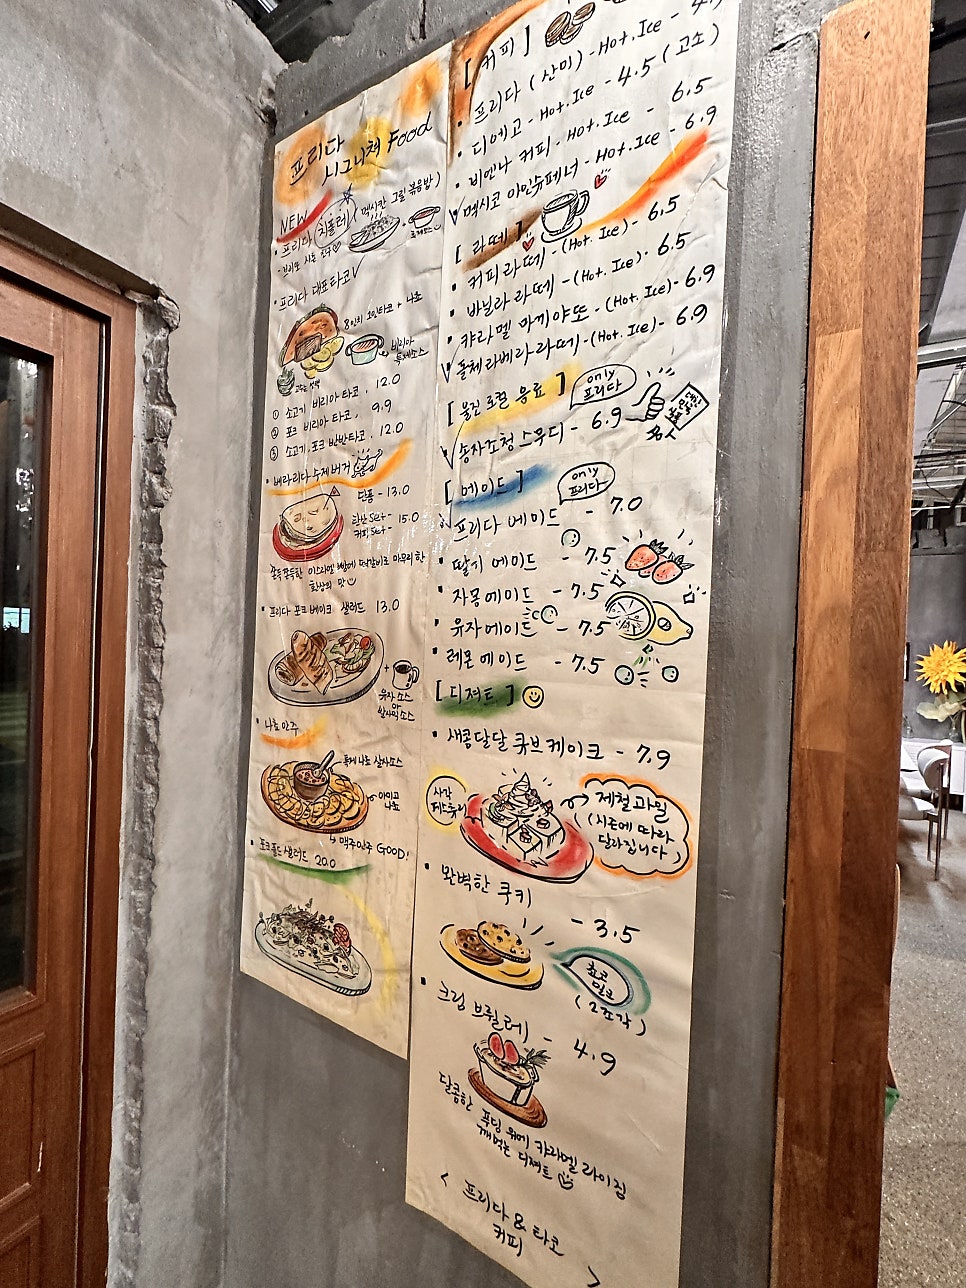 프리다
시그니쳐 Food
NEW
프리다 치폴레 (멕시칸 그릴 볶음밥)
프리다 대표타코
8인치 1인타코 + 나쵸
비리아
특제소스
① 소고기 비리아 타코. 12.0
② 포크 비리아 타코. 9.9
③ 소고기.포크 반반타코. 12.0
• 베라리다 수제버거
단품 - 13.0
탄산 Set -
커피 Set - 15.0
쫄득쫀득한 이스라엘 빵에 떡갈비로 마무리한
환상의 맛
• 프리다 포크 베이크 샐러드 13.0
+
유자 소스
or
발사믹소스
• 나쵸 안주
특제 나쵸 살사소스
아미고
나쵸
↳ 맥주안주 GOOD!
• 포크풀드 샐러드 20.0
[커피] Hot.Ice - 4.
• 프리다 (산미) - Hot.Ice
• 디에고 - Hot.Ice - 4.5 (고소)
• 비엔나 커피 - Hot.Ice - 6.5
멕시코 아인슈페너 - Hot.Ice - 6.9
[라떼]
• 커피 라떼 - (Hot. Ice) - 6.5
• 바닐라 라떼 - (Hot. Ice) - 6.5
• 캬라멜 마끼야또 - (Hot. Ice) - 6.9
돌체라베라 라떼 - (Hot. Ice) - 6.9
[울진 로컬 음료]
only
프리다
송자조청 스무디 - 6.9
[에이드]
only
프리다
프리다 에이드 - 7.0
• 딸기 에이드 - 7.5
• 자몽 에이드 - 7.5
• 유자 에이드 - 7.5
• 레몬 에이드 - 7.5
[디져트]
• 새콤달달 큐브 케이크 - 7.9
사각
페스튜리
제철 과일
(시즌에 따라
달라집니다)
• 완벽한 쿠키 - 3.5
초코
민크
(2조각)
• 크림 브륄레 - 4.9
달콤한 푸딩 위에 캬라멜 라이징
깨먹는 디져트
< 프리다 & 타코
커피 >